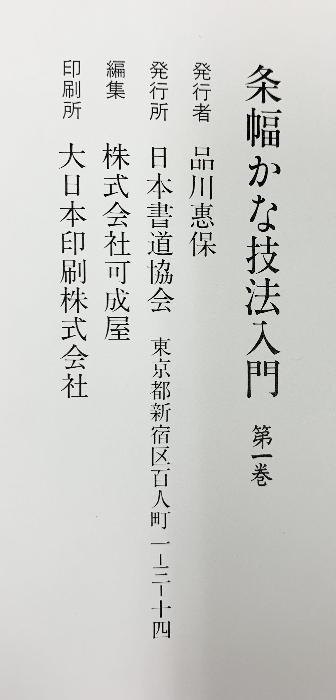 条幅かな技法入門 第一巻
発行者 品川惠保
発行所 日本書道協会 東京都新宿区百人町一-三-十四
編集 株式会社可成屋
印刷所 大日本印刷株式会社